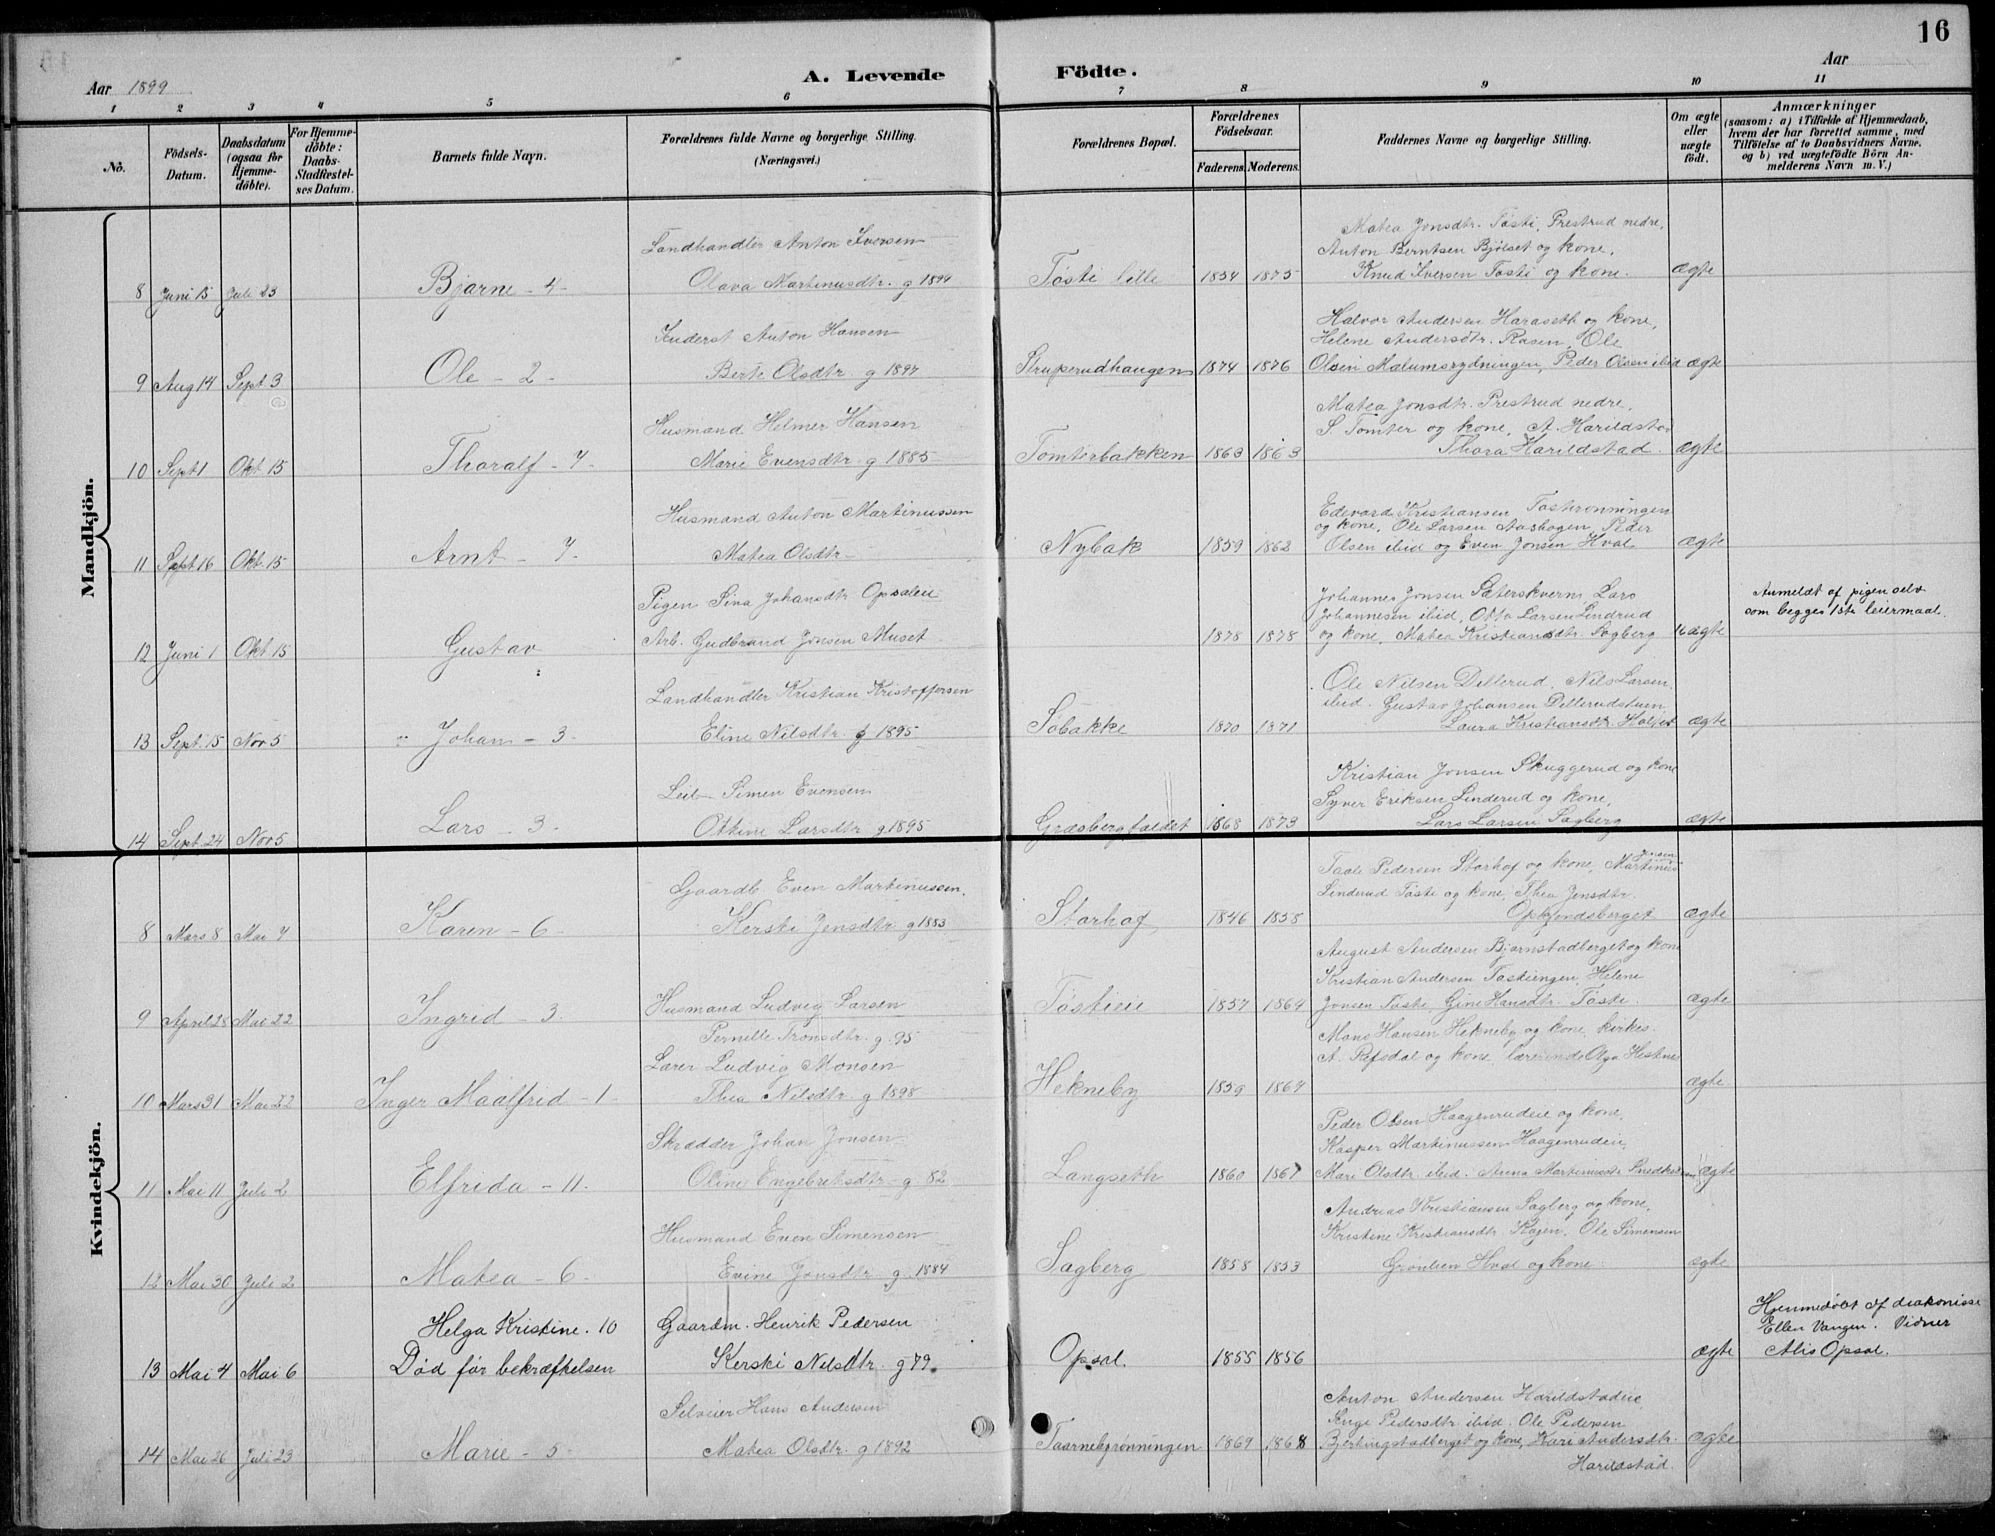 16
Aar 1899
A. Levende Födte.
Aar
1 2 3 4 5 6 7 8 9 10 11
No.
Födsels-Datum.
Daabsdatum (ogsaa for Hjemme-döbte).
For Hjemme-döbte: Daabs-Stadfæstel-ses Datum.
Barnets fulde Navn.
Forældrenes fulde Navne og borgerlige Stilling. (Næringsvei.)
Forældrenes Bopæl.
Forældrenes Födselsaar.
Faderens. Moderens.
Faddernes Navne og borgerlige Stilling.
Om ægte eller uægte födt.
Anmærkninger (saasom: a) i Tilfælde af Hjemmedaab, hvem der har forrettet samme, med Tilföielse af to Daabsvidners Navne. og b) ved uægtefödte Börn An-melderens Navn m. V.)
Mandkjön.
Landhandler Anton Iversen
Matea Jonsdtr. Tøsti, Prestrud nedre,
Anton Berntsen Bjølset og kone,
8 Juni 15 Juli 23 Bjarne - 4 - Olava Martinusdtr. g 1894 Tøsti lille 1854 1875 Knud Iversen Tøsti og kone. ægte
Inderst Anton Hansen
Halvor Andersen Haraseth og kone,
Helene Andersdtr. Rosen, Ole
9 Aug 14 Sept 3 Ole - 2 - Berte Olsdtr g 1897 Struperudhaugen 1874 1876 Olsen Malumsrydningen, Peder Olsen ibid ægte
Husmand Helmer Hansen
Matea Jonsdtr. Prestrud nedre,
S. Tomter og kone, A. Harildstad
10 Sept 1 Okt 15 Thoralf - 7 - Marie Evensdtr g 1885 Tomterbakken 1863 1863 Thora Harildstad. ægte
Husmand Anton Martinussen
Edevard Kristiansen
og kone, Ole Larsen Aasbogen, Peder
11 Sept 16 Okt 15 Arnt - 7 - Matea Olsdtr Nybak 1859 1862 Olsen ibid og Even Jonsen Hval ægte
Pigen Sina Johansdtr Opsalen
Johannes Jonsen Sæterskvern Lars
Johannesen ibid, Otto Larsen Lindrud
Anmeldt af pigen selv
som begges 1ste leiermaal.
12 Juni 1 Okt 15 Gustav Arb. Gudbrand Jonsen Muset 1878 1878 og kone, Matea Kristiansdtr. Sagberg uægte
Landhandler Kristian Kristoffersen
Ole Nilsen Dellerud, Nils Larsen
ibid. Gustav Johansen Dellerudstuen
13 Sept. 15 Nov 5 Johan - 3 - Eline Nilsdtr g 1895 Søbakke 1870 1871 Laura Kristiansdtr. ægte
Leil Simen Evensen
Kristian Jonsen Skuggerud og kone
Syver Eriksen Linderud og kone,
14 Sept. 24 Nov 5 Lars - 3 - Ottine Larsdtr g 1895 Græsbergfaldet 1868 1873 Lars Larsen Sagberg ægte
Kvindekjön.
Gaardb Even Martinussen.
Taale Pedersen Storhof og kone, Martinus Jensen
Linderud Tøsti og kone, Thea Jensdtr.
8 Mars 8 Mai 7 Karen - 6 - Kersti Jensdtr. g 1883 Storhof 1846 1858 ægte
August Andersen Bjørnstadberget og kone
Kristian Andersen Tøstiengen, Helene
9 April 28 Mai 22 Ingrid - 3. Husmand Ludvig Larsen Tøstieie 1857 1869 Jonsen Tøsti, Gine Hansdtr. Tøsti. ægte
Pernille Tronsdtr. g. 95
Mons Hansen Hekneby og kone, kirkes.
Lærer Ludvig Monsen
A. Refsdal og kone, lærerinde Olga
10 Mars 31 Mai 22 Inger Maalfrid - 1 - Thea Nilsdtr g 1898 Hekneby 1859 1869 ægte
Skrædder Johan Jonsen
Peder Olsen Haagenrudeie og kone,
Kasper Martinussen Haagenrudeie,
11 Mai 11 Juli 2 Elfrida - 11 - Oline Engebretsdtr - g. 82 Langseth 1860 1867 Mari Olsdtr. ibid. Anna Martinusdtr ægte
Husmand Even Simensen
Andreas Kristiansen Sagberg og kone,
Kristine Kristiansdtr Skogen, Ole Simensen
12 Mai 30 Juli 2 Matea - 6 - Evine Jonsdtr g. 1884 Sagberg 1858 1853 Grønlien Hval og kone. ægte
Helga Kristine. 10 Gaardm. Henrik Pedersen
Hjemmedøbt af diakonisse
Ellen Vangen. Vidner
13 Mai 4 Mai 6 Død før bekræftelsen Kersti Nilsdtr. g 79. Opsal. 1855 1856 ægte Alis Opsal.
Selveier Hans Andersen
Anton Andersen Harildstadeie,
Inge Pedersdtr. ibid. Ole Pedersen
14 Mai 26 Juli 23 Marie - 5 - Matea Olsdtr. g 1892 Taarnebprønningen 1869 1868 Bjerkingstadberget og kone, Kari Andersdtr. ægte
Harildstad.